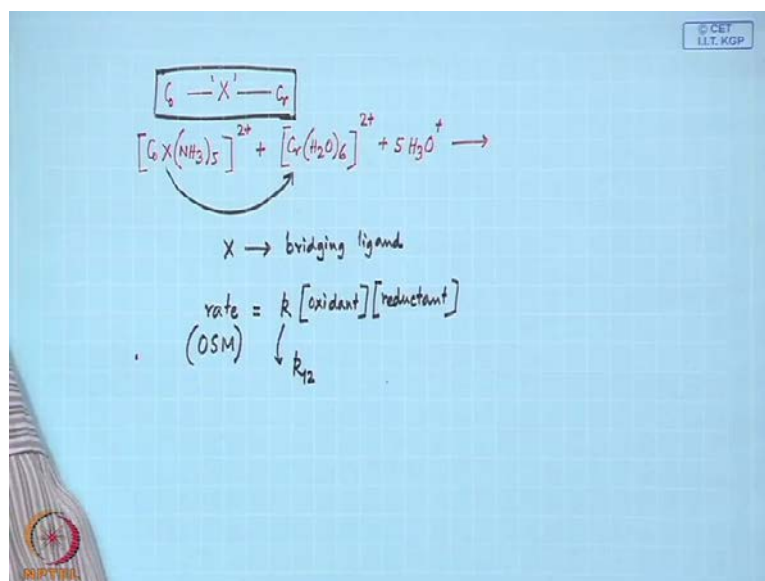 © CET
I.I.T. KGP
Co — 'X' — Cr
[CoX(NH3)5]2+ + [Cr(H2O)6]2+ + 5 H3O+ ⟶
X → bridging ligand
rate = k [oxidant][reductant]
(OSM)
k12
NPTEL